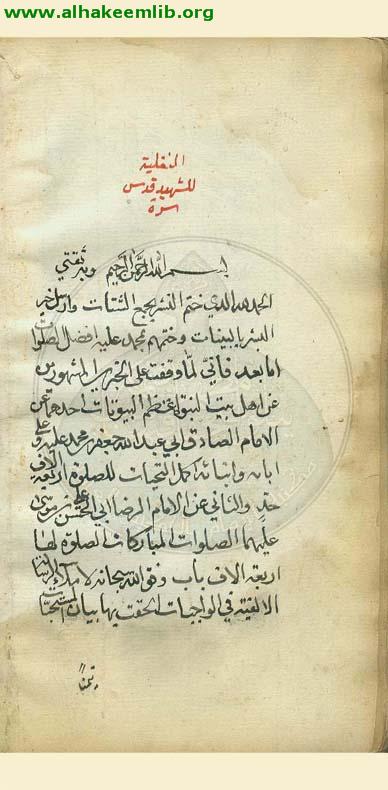 www.alhakeemlib.org
النفلية
للشهيد قدس
سره
بسم الله الرحمن الرحيم وبه ثقتي
الحمد لله الذي ختم
البشر بالبينات وختمهم بمحمد عليه افضل الصلوات
اما بعد فاني لما وقفت على الخبرين المشهورين
عن اهل بيت النبوة اعظم البيوتات احدهما عن
الامام الصادق ابي عبد الله جعفر بن محمد عليه وعلى
ابائه وابنائه اكمل التحيات للصلوة اربعة الاف
حد والثاني عن الامام الرضا ابي الحسن علي بن موسى
عليهما الصلوات المباركات الصلوة لها
اربعة الاف باب ووفق الله سبحانه لاملاء الرسالة
الالفية في الواجبات الحقت بها بيان المستحبات